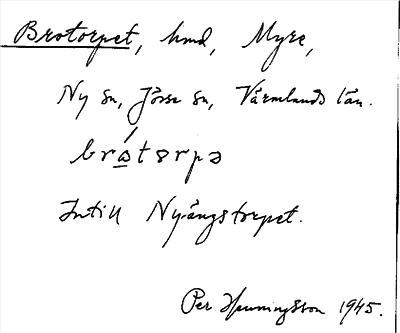 Brotorpet, hmd, Myre,
Ny sn, Jösse hd, Värmlands län.
brótorpə
Intill Nyängstorpet.
Per Henningsson 1945.